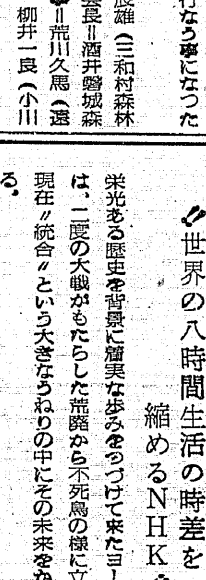 行なう事になつた
長雄（三和村森林
会長＝酒井磐城森
＝荒川久馬（遠
柳井一良（小川
世界の八時間生活の時差を
縮めるNHK
栄光ある歴史を背景に着実な歩みをつづけて来たヨー
は、二度の大戦がもたらした荒廃から不死鳥の様に立
現在〃統合〃という大きなうねりの中にその未来をか
る。